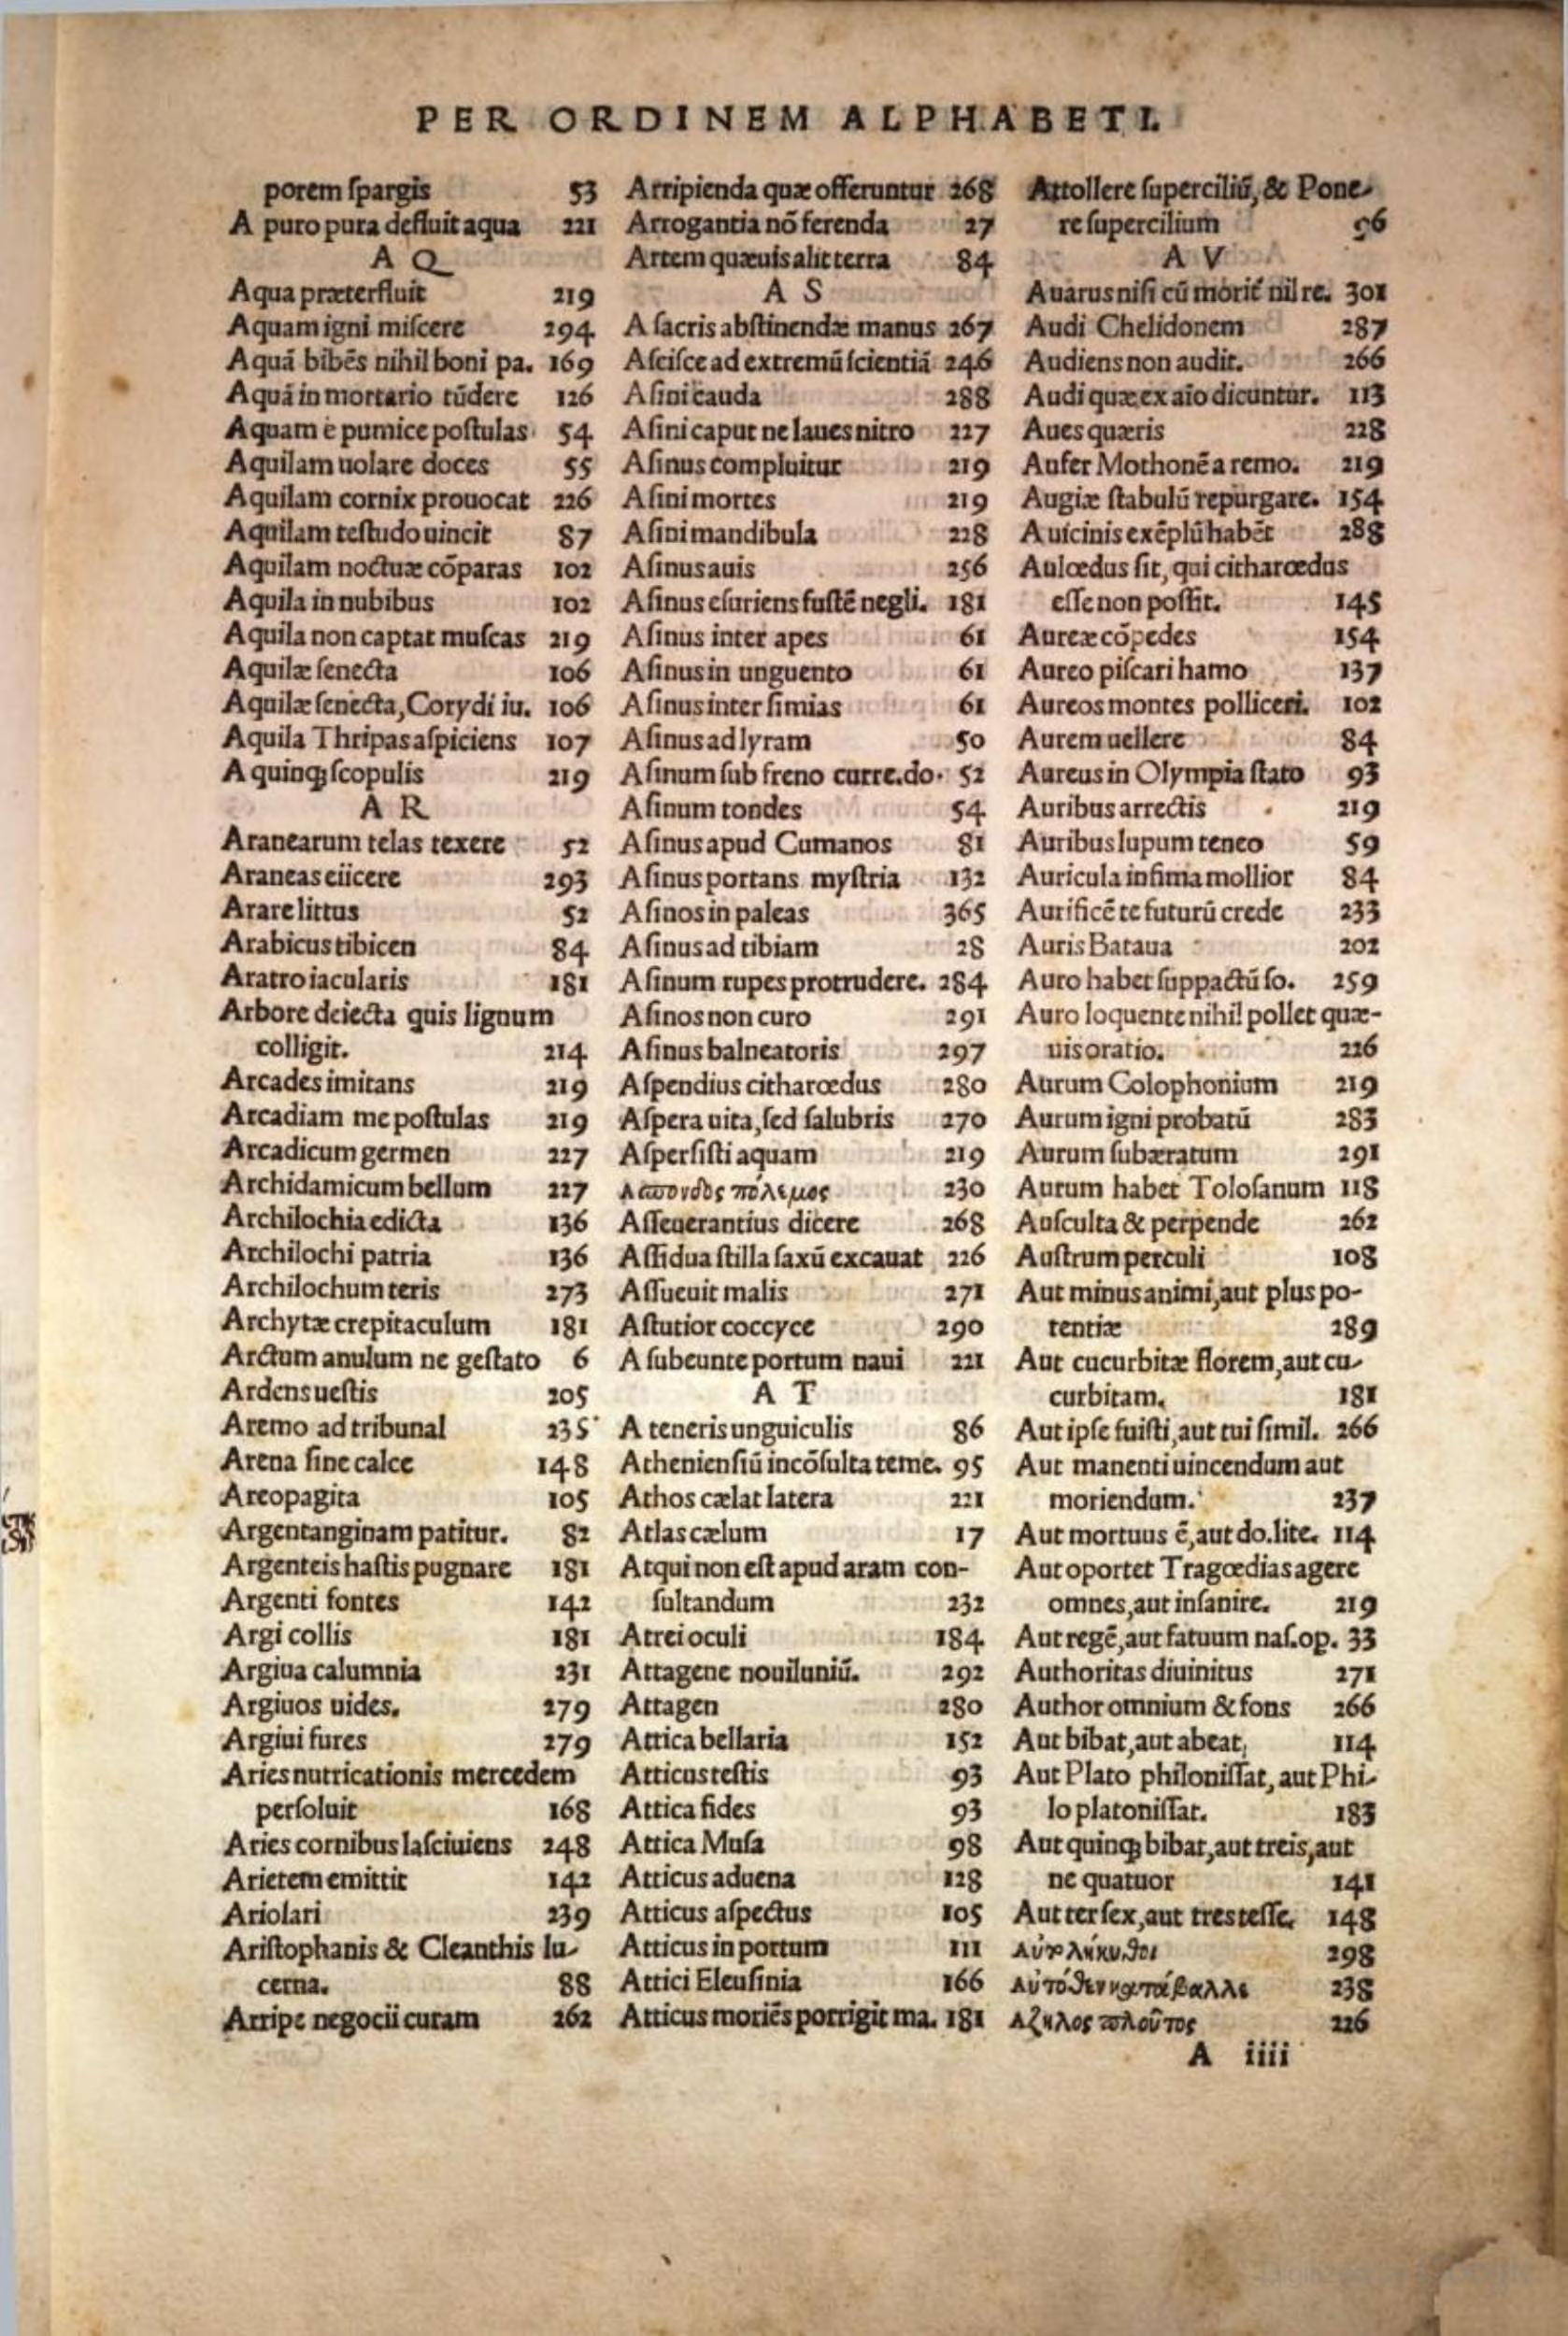 PER ORDINEM ALPHABETI.
porem ſpargis 53
A puro pura defluit aqua 221
A Q
Aqua præterfluit 219
Aquam igni miſcere 294
Aquā bibēs nihil boni pa. 169
Aquā in mortario tūdere 126
Aquam e pumice poſtulas 54
Aquilam uolare doces 55
Aquilam cornix prouocat 226
Aquilam teſtudo uincit 87
Aquilam noctuæ cōparas 102
Aquila in nubibus 102
Aquila non captat muſcas 219
Aquilæ ſenecta 106
Aquilæ ſenecta, Corydi iu. 106
Aquila Thripas aſpiciens 107
A quinqȝ ſcopulis 219
A R
Aranearum telas texere 52
Araneas eiicere 293
Arare littus 52
Arabicus tibicen 84
Aratro iacularis 181
Arbore deiecta quis lignum
colligit. 214
Arcades imitans 219
Arcadiam me poſtulas 219
Arcadicum germen 227
Archidamicum bellum 227
Archilochia edicta 136
Archilochi patria 136
Archilochum teris 273
Archytæ crepitaculum 181
Arctum anulum ne geſtato 6
Ardens ueſtis 205
Aremo ad tribunal 235
Arena ſine calce 148
Areopagita 105
Argentanginam patitur. 82
Argenteis haſtis pugnare 181
Argenti fontes 142
Argi collis 181
Argiua calumnia 231
Argiuos uides. 279
Argiui fures 279
Aries nutricationis mercedem
perſoluit 168
Aries cornibus laſciuiens 248
Arietem emittit 142
Ariolari 239
Ariſtophanis & Cleanthis lu-
cerna. 88
Arripe negocii curam 262
Arripienda quæ offeruntur 268
Arrogantia nō ferenda 27
Artem quæuis alit terra 84
A S
A ſacris abſtinendæ manus 267
Aſciſce ad extremū ſcientiā 246
Aſini cauda 288
Aſini caput ne laues nitro 227
Aſinus compluitur 219
Aſini mortes 219
Aſini mandibula 228
Aſinus auis 256
Aſinus eſuriens fuſtē negli. 181
Aſinus inter apes 61
Aſinus in unguento 61
Aſinus inter ſimias 61
Aſinus ad lyram 50
Aſinum ſub freno curre.do. 52
Aſinum tondes 54
Aſinus apud Cumanos 81
Aſinus portans myſtria 132
Aſinos in paleas 365
Aſinus ad tibiam 28
Aſinum rupes protrudere. 284
Aſinos non curo 291
Aſinus balneatoris 297
Aſpendius citharœdus 280
Aſpera uita, ſed ſalubris 270
Aſperſiſti aquam 219
Ασπονδος πόλεμος 230
Aſſeuerantius dicere 268
Aſſidua ſtilla ſaxū excauat 226
Aſſueuit malis 271
Aſtutior coccyce 290
A ſubeunte portum naui 221
A T
A teneris unguiculis 86
Athenienſiū incōſulta teme. 95
Athos cælat latera 221
Atlas cælum 17
Atqui non eſt apud aram con-
ſultandum 232
Atrei oculi 184
Attagene nouiluniū. 292
Attagen 280
Attica bellaria 152
Atticus teſtis 93
Attica fides 93
Attica Muſa 98
Atticus aduena 128
Atticus aſpectus 105
Atticus in portum 111
Attici Eleuſinia 166
Atticus moriēs porrigit ma. 181
Attollere ſuperciliū, & Pone-
re ſupercilium 96
A V
Auarus niſi cū morit́ nil re. 301
Audi Chelidonem 287
Audiens non audit. 266
Audi quæ ex aīo dicuntur. 113
Aues quæris 228
Aufer Mothonē a remo. 219
Augiæ ſtabulū repurgare. 154
A uicinis exēplū habēt 288
Aulœdus ſit, qui citharœdus
eſſe non poſſit. 145
Aureæ cōpedes 154
Aureo piſcari hamo 137
Aureos montes polliceri. 102
Aurem uellere 84
Aureus in Olympia ſtato 93
Auribus arrectis 219
Auribus lupum teneo 59
Auricula infima mollior 84
Aurificē te futurū crede 233
Auris Bataua 202
Auro habet ſuppactū ſo. 259
Auro loquente nihil pollet quæ-
uis oratio. 226
Aurum Colophonium 219
Aurum igni probatū 283
Aurum ſubæratum 291
Aurum habet Toloſanum 118
Auſculta & perpende 262
Auſtrum perculi 108
Aut minus animi, aut plus po-
tentiæ 289
Aut cucurbitæ florem, aut cu-
curbitam. 181
Aut ipſe fuiſti, aut tui ſimil. 266
Aut manenti uincendum aut
moriendum. 237
Aut mortuus ē, aut do.lite. 114
Aut oportet Tragœdias agere
omnes, aut inſanire. 219
Aut regē, aut fatuum naſ.op. 33
Authoritas diuinitus 271
Author omnium & fons 266
Aut bibat, aut abeat, 114
Aut Plato philoniſſat, aut Phi-
lo platoniſſat. 183
Aut quinqȝ bibat, aut treis, aut
ne quatuor 141
Aut ter ſex, aut tres teſſe. 148
Αὐτολήκυθοι 298
Αὐτόθεν καταβάλλε 238
Αζηλος πλοῦτος 226
A iiii